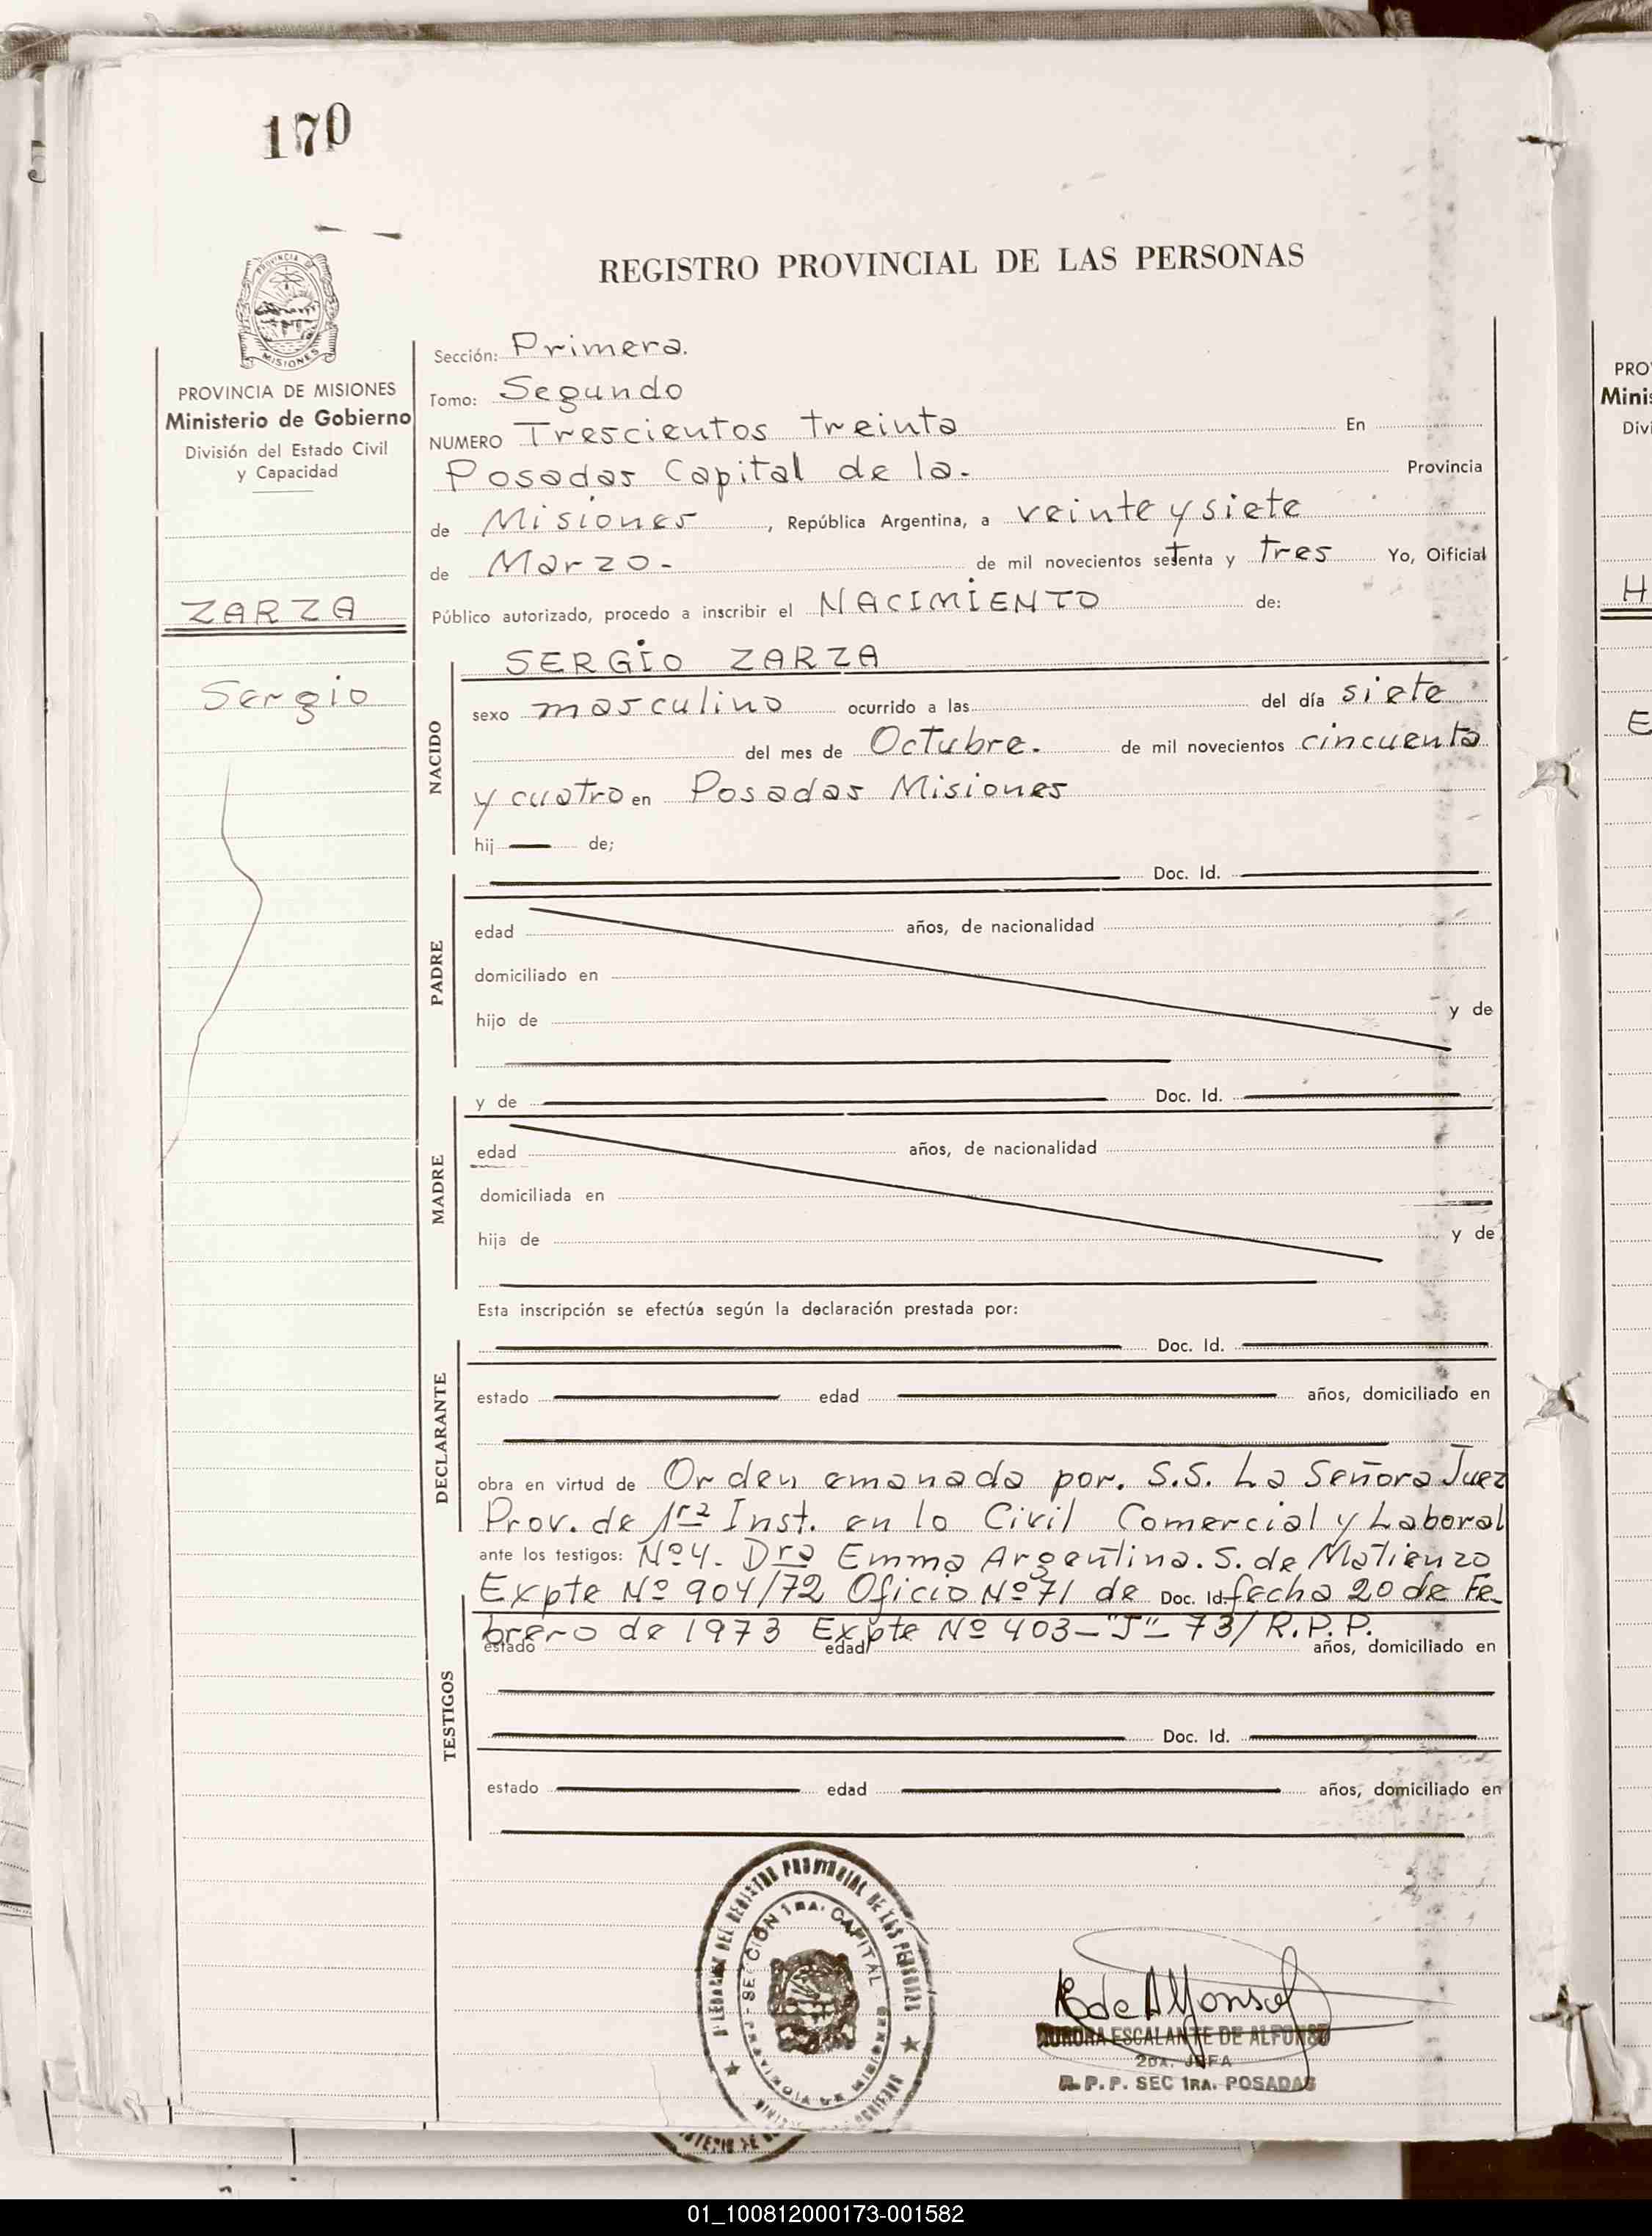 170
REGISTRO PROVINCIAL DE LAS PERSONAS
PROVINCIA DE MISIONES
Ministerio de Gobierno
División del Estado Civil
y Capacidad
ZARZA
Sergio
Sección: Primera.
Tomo: Segundo
NUMERO Trescientos treinta En
Posadas Capital de la. Provincia
de Misiones, República Argentina, a veinte y siete
de Marzo. de mil novecientos setenta y tres Yo, Oificial
Público autorizado, procedo a inscribir el NACIMIENTO de:
NACIDO
SERGIO ZARZA
sexo masculino ocurrido a las del día siete
del mes de Octubre. de mil novecientos cincuenta
y cuatro en Posadas Misiones
hij de;
PADRE
Doc. Id.
edad años, de nacionalidad
domiciliado en
hijo de y de
MADRE
y de Doc. Id.
edad años, de nacionalidad
domiciliada en
hija de y de
Esta inscripción se efectúa según la declaración prestada por:
DECLARANTE
Doc. Id.
estado edad años, domiciliado en
obra en virtud de Orden emanada por. S.S. La Señora Juez
Prov. de 1ra Inst. en lo Civil Comercial y Laboral
ante los testigos: Nº4. Dra Emma Argentina. S. de Matienzo
Expte Nº 904/72 Oficio Nº 71 de Doc. Id. fecha 20 de Fe-
brero de 1973 Expte Nº 403-"J"- 73/R.P.P.
estado edad años, domiciliado en
TESTIGOS
Doc. Id.
estado edad años, domiciliado en
DEL REGISTRO PROVINCIAL DE LAS PERSONAS
SECCION 1RA. CAPITAL
PROVINCIA DE MISIONES
E. de Alfonso
AURORA ESCALANTE DE ALFONSO
2DA. JEFA
R.P.P. SEC 1RA. POSADAS
PRO
Minis
Divi
H
E
01_100812000173-001582